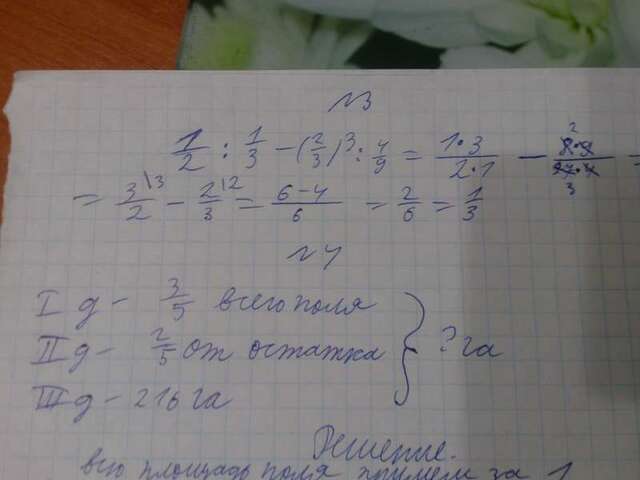 №3
1/2 : 1/3 − (2/3)³ : 4/9 = 1·3/2·1 − 8·9/27·4 2/3 =
= 3/2 \3 − 2/3 \2 = 6−4/6 = 2/6 = 1/3
№4
I д – 3/5 всего поля
II д – 2/5 от остатка } ? га
III д – 216 га
Решение.
всю площадь поля примем за 1